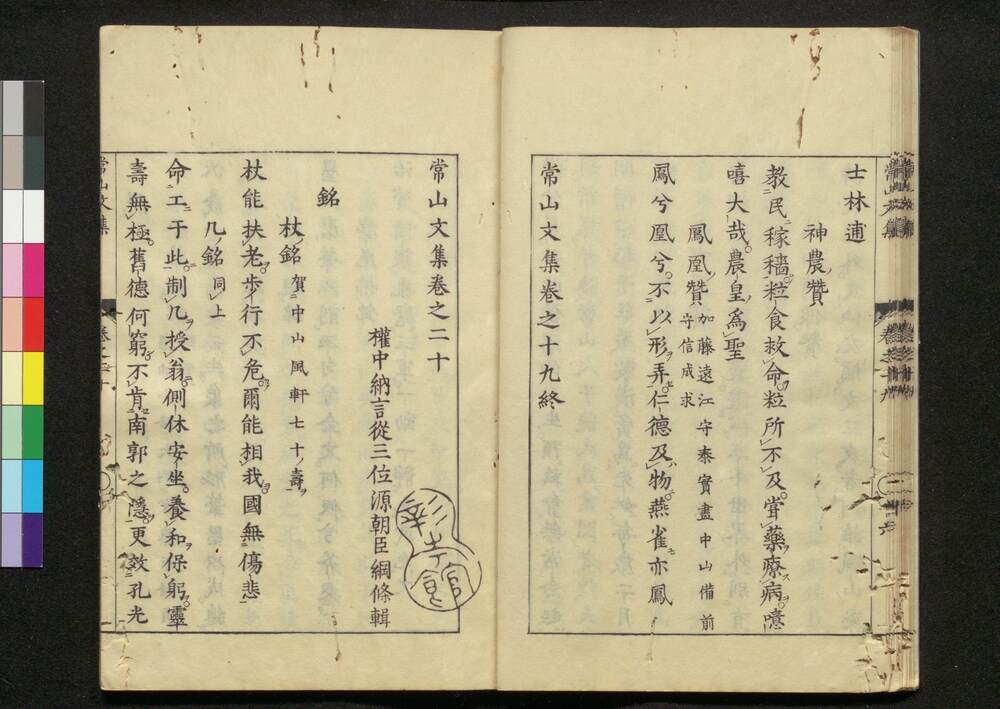 士林逋
神農贊
教民稼穡粒食救命粒所不及嘗藥療病噫
嘻大哉農皇爲聖
鳳凰贊 加藤遠江守泰實畫中山備前
守信成求
鳳兮凰兮不以形弄仁德及物燕雀亦鳳
常山文集卷之十九終
常山文集卷之二十
權中納言從三位源朝臣綱條輯
彰考館
銘
杖銘 賀中山風軒七十壽
杖能扶老步行不危爾能相我國無傷悲
几銘 同上
命工于此制几授翁側休安坐養和保躬靈
壽無極舊德何窮不肯南郭之隱更效孔光
常山文集
卷之二十